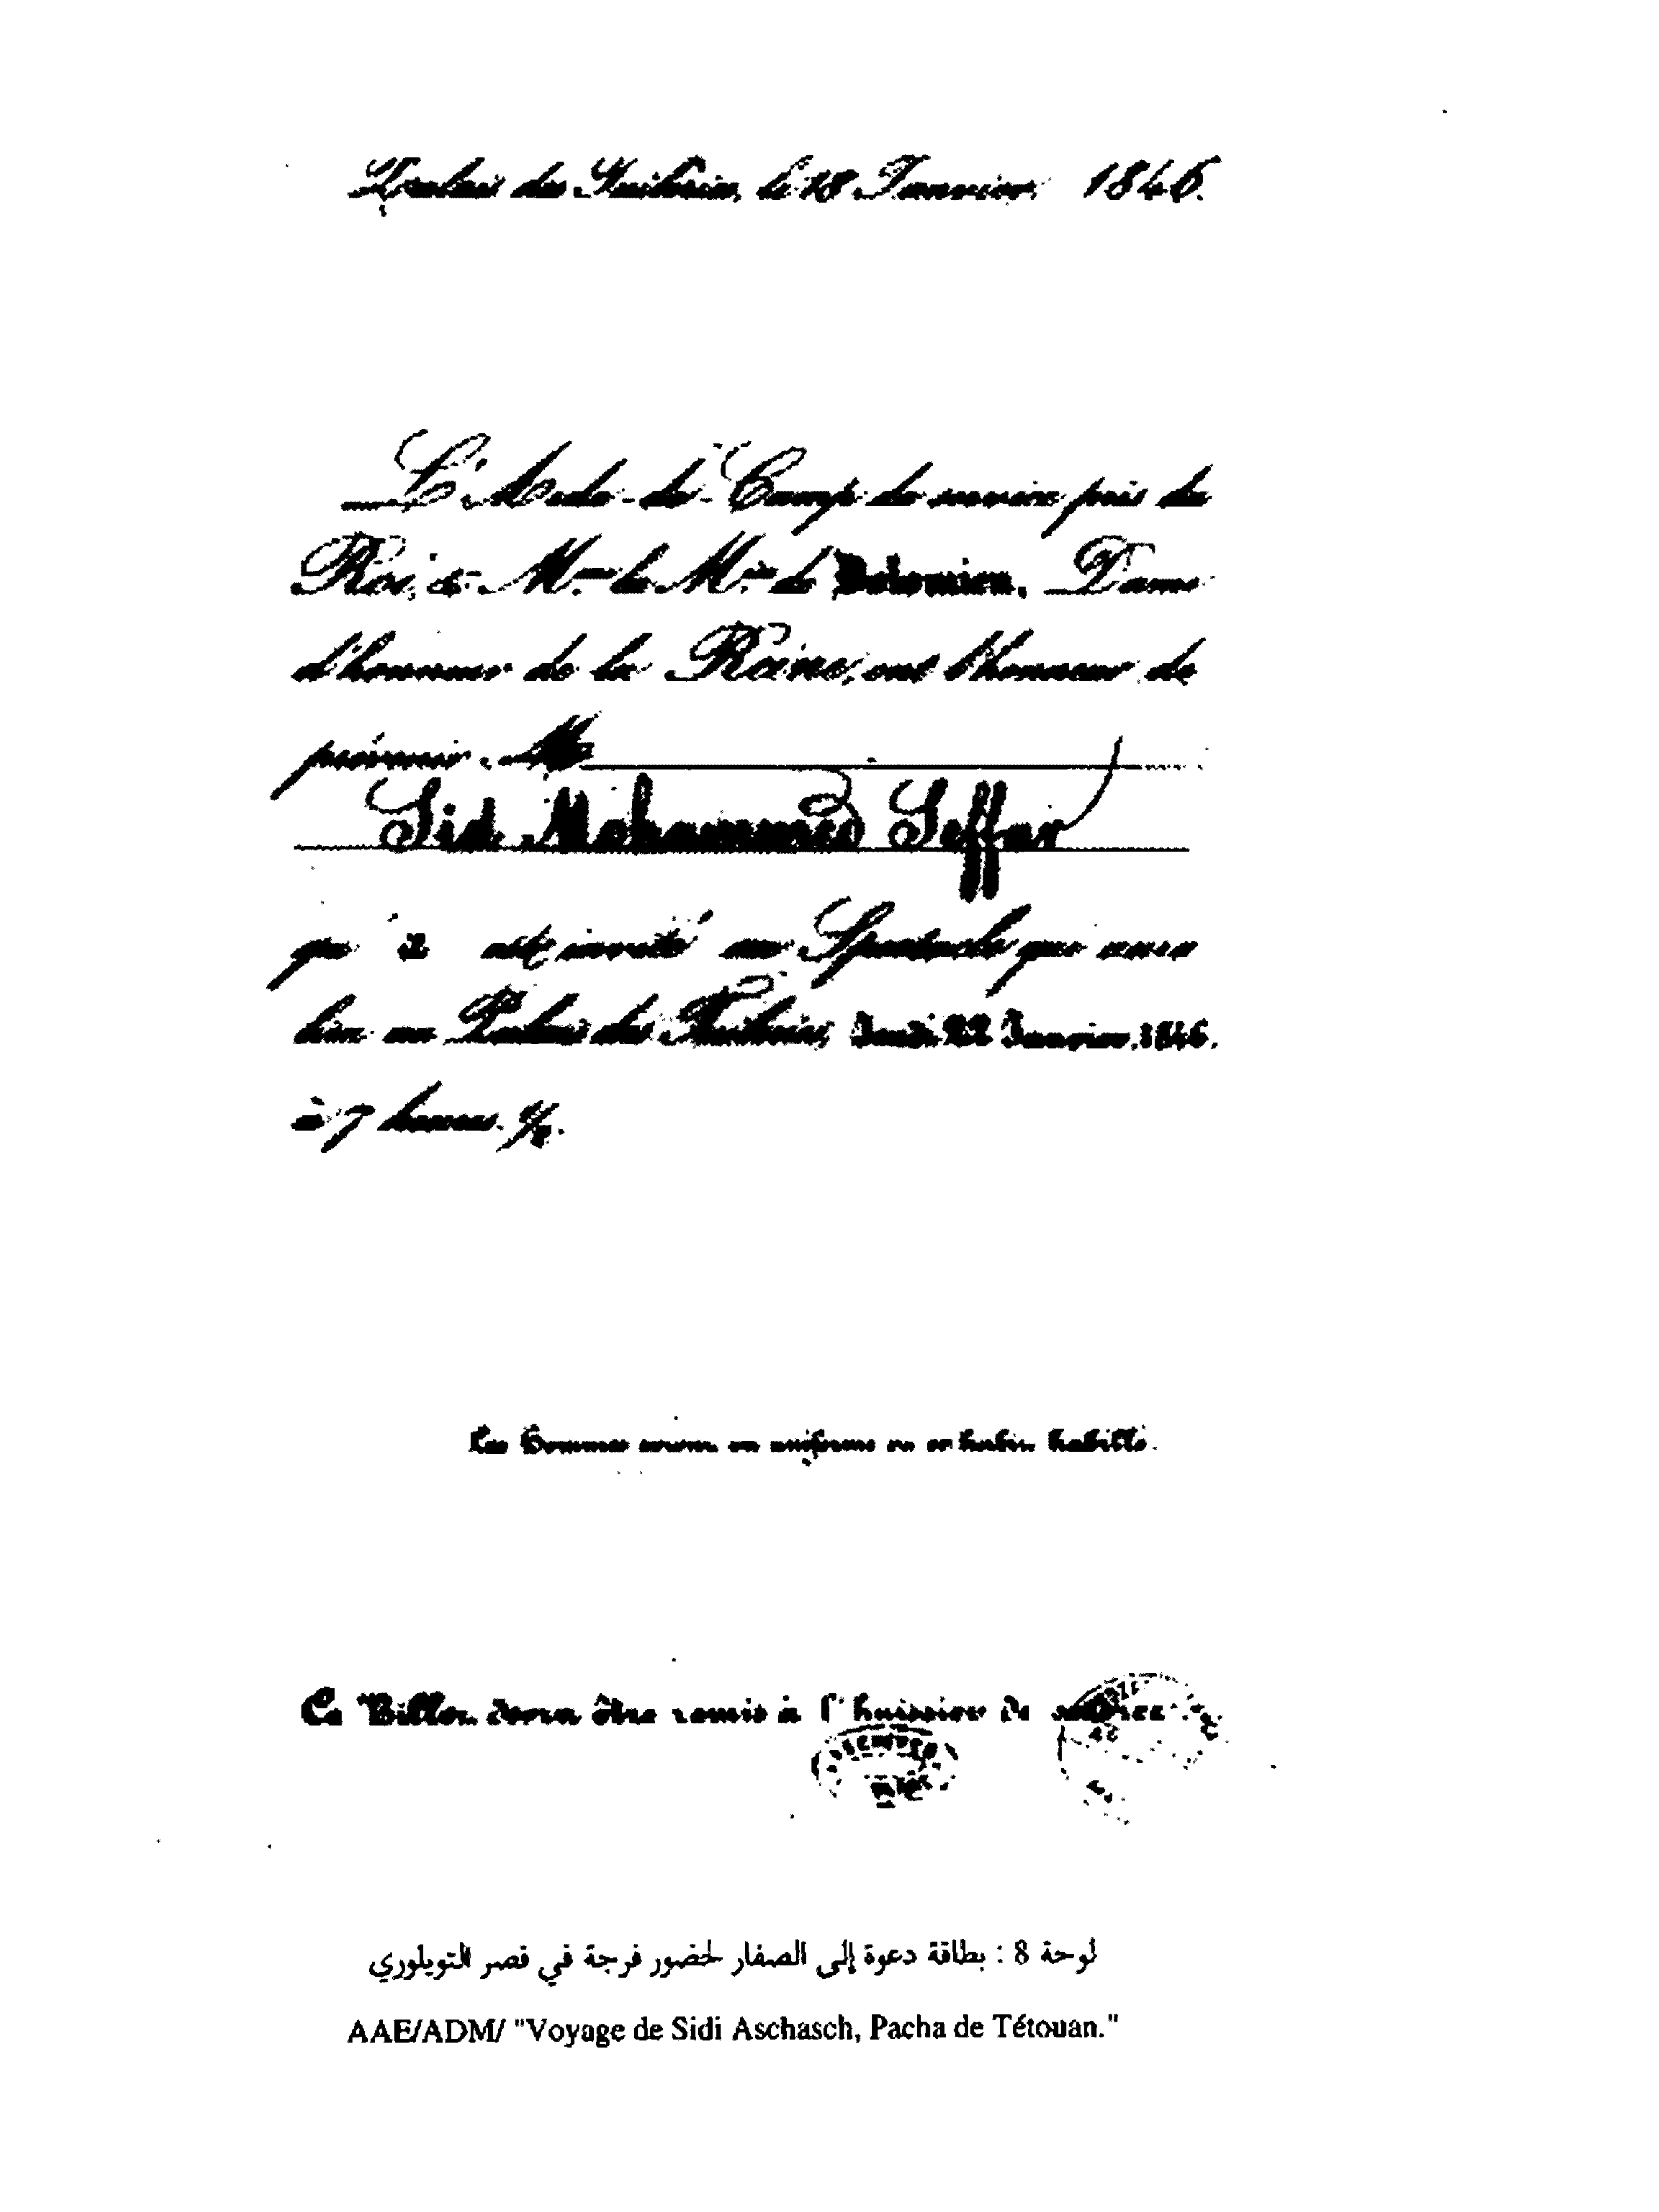 Palais des Tuileries, le 18 Janvier 1846.
L'Aide-de-Camp de service près du
Roi, & Mme la Mise de Dolomieu, Dame
d'honneur de la Reine, ont l'honneur de
prévenir M
Sid Mohammed Seffar
qu'il est invité au Spectacle qui aura
lieu au Palais des Tuileries, Jeudi 22 Janvier, 1846.
à 7 heures ½.
Les hommes seront en uniforme ou en habit habillé.
Ce Billet devra être remis à l'huissier de
لوحة 8 : بطاقة دعوة إلى الصفار لحضور فرجة في قصر التويلوري
AAE/ADM/ "Voyage de Sidi Aschasch, Pacha de Tétouan."